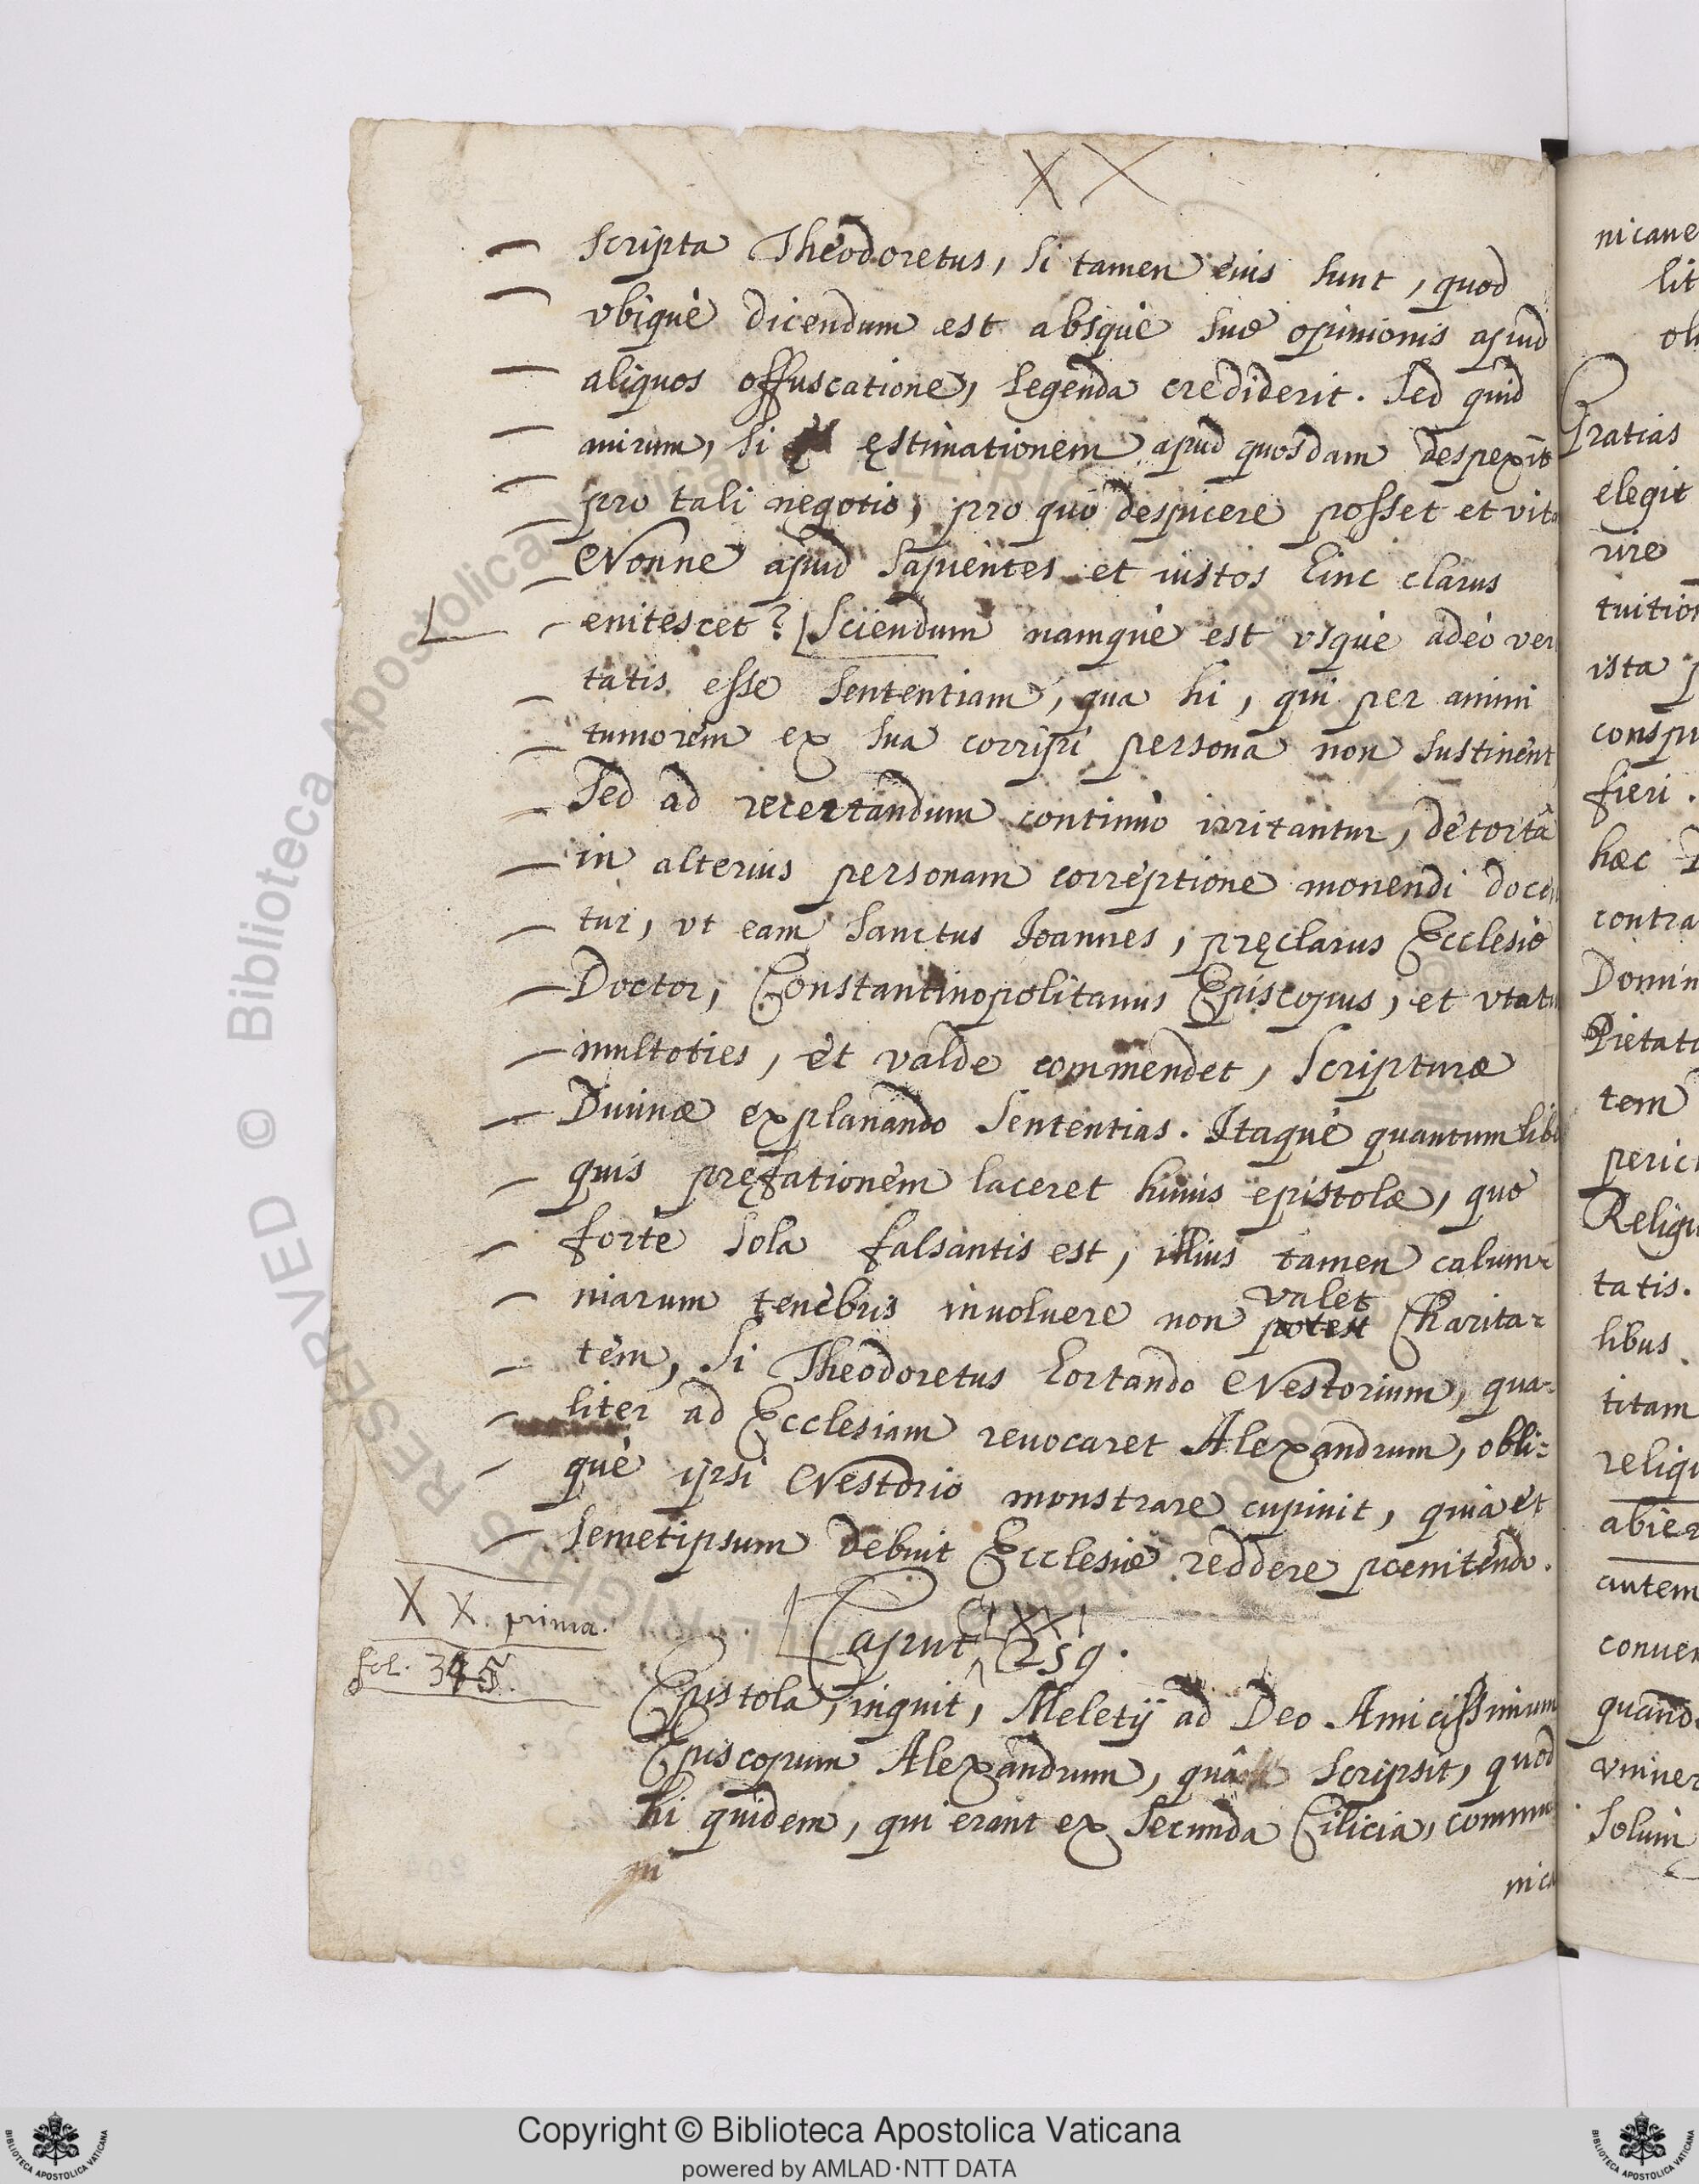 XX
scripta Theodoretus, si tamen eius sunt, quod
vbique dicendum est absque suæ opinionis apud
aliquos offuscatione, legenda crediderit. Sed quid
mirum, si ęstimationem apud quosdam despexit
pro tali negotio, pro quo despicere posset et vita
Nonne apud sapientes et iustos hinc clarus
enitescet? [Sciendum namque est vsque adeò veri
tatis esse sententiam, qua hi, qui per animi
tumorem ex sua corripi persona non sustinent
sed ad recertandum continuò irritantur, detortâ
in alterius personam correptione monendi docen
tur, vt eam Sanctus Ioannes, pręclarus Ecclesiæ
Doctor, Constantinopolitanus Episcopus, et vtatu
multoties, et valde commendet, Scripturæ
Diuinæ explanando sententias. Itaque quantumlibe
quis pręfationem laceret huius epistolæ, quæ
forte sola falsantis est, illius tamen calum-
niarum tenebris inuoluere non valet
potest Charita-
tem, si Theodoretus hortando Nestorium, qua-
liter ad Ecclesiam reuocaret Alexandrum, obli-
què ipsi Nestorio monstrare cupiuit, quia et
semetipsum debuit Ecclesiæ reddere poenitendo.
XX. prima.
fol. 345.
Caput CLXXI
259.
Epistola, inquit, Meletij ad Deo Amicissimum
Episcopum Alexandrum, quâ scripsit, quod
hi quidem, qui erant ex secunda Cilicia, commu
ni
nica
nicaue
lit
Gratias
elegit
tuition
ista
conspi
fieri.
hæc
contra
Domin
Pietat
tem
peric
Relig
tatis.
libus
titam
reliqu
abie
autem
conuen
quand
vniuer
solum